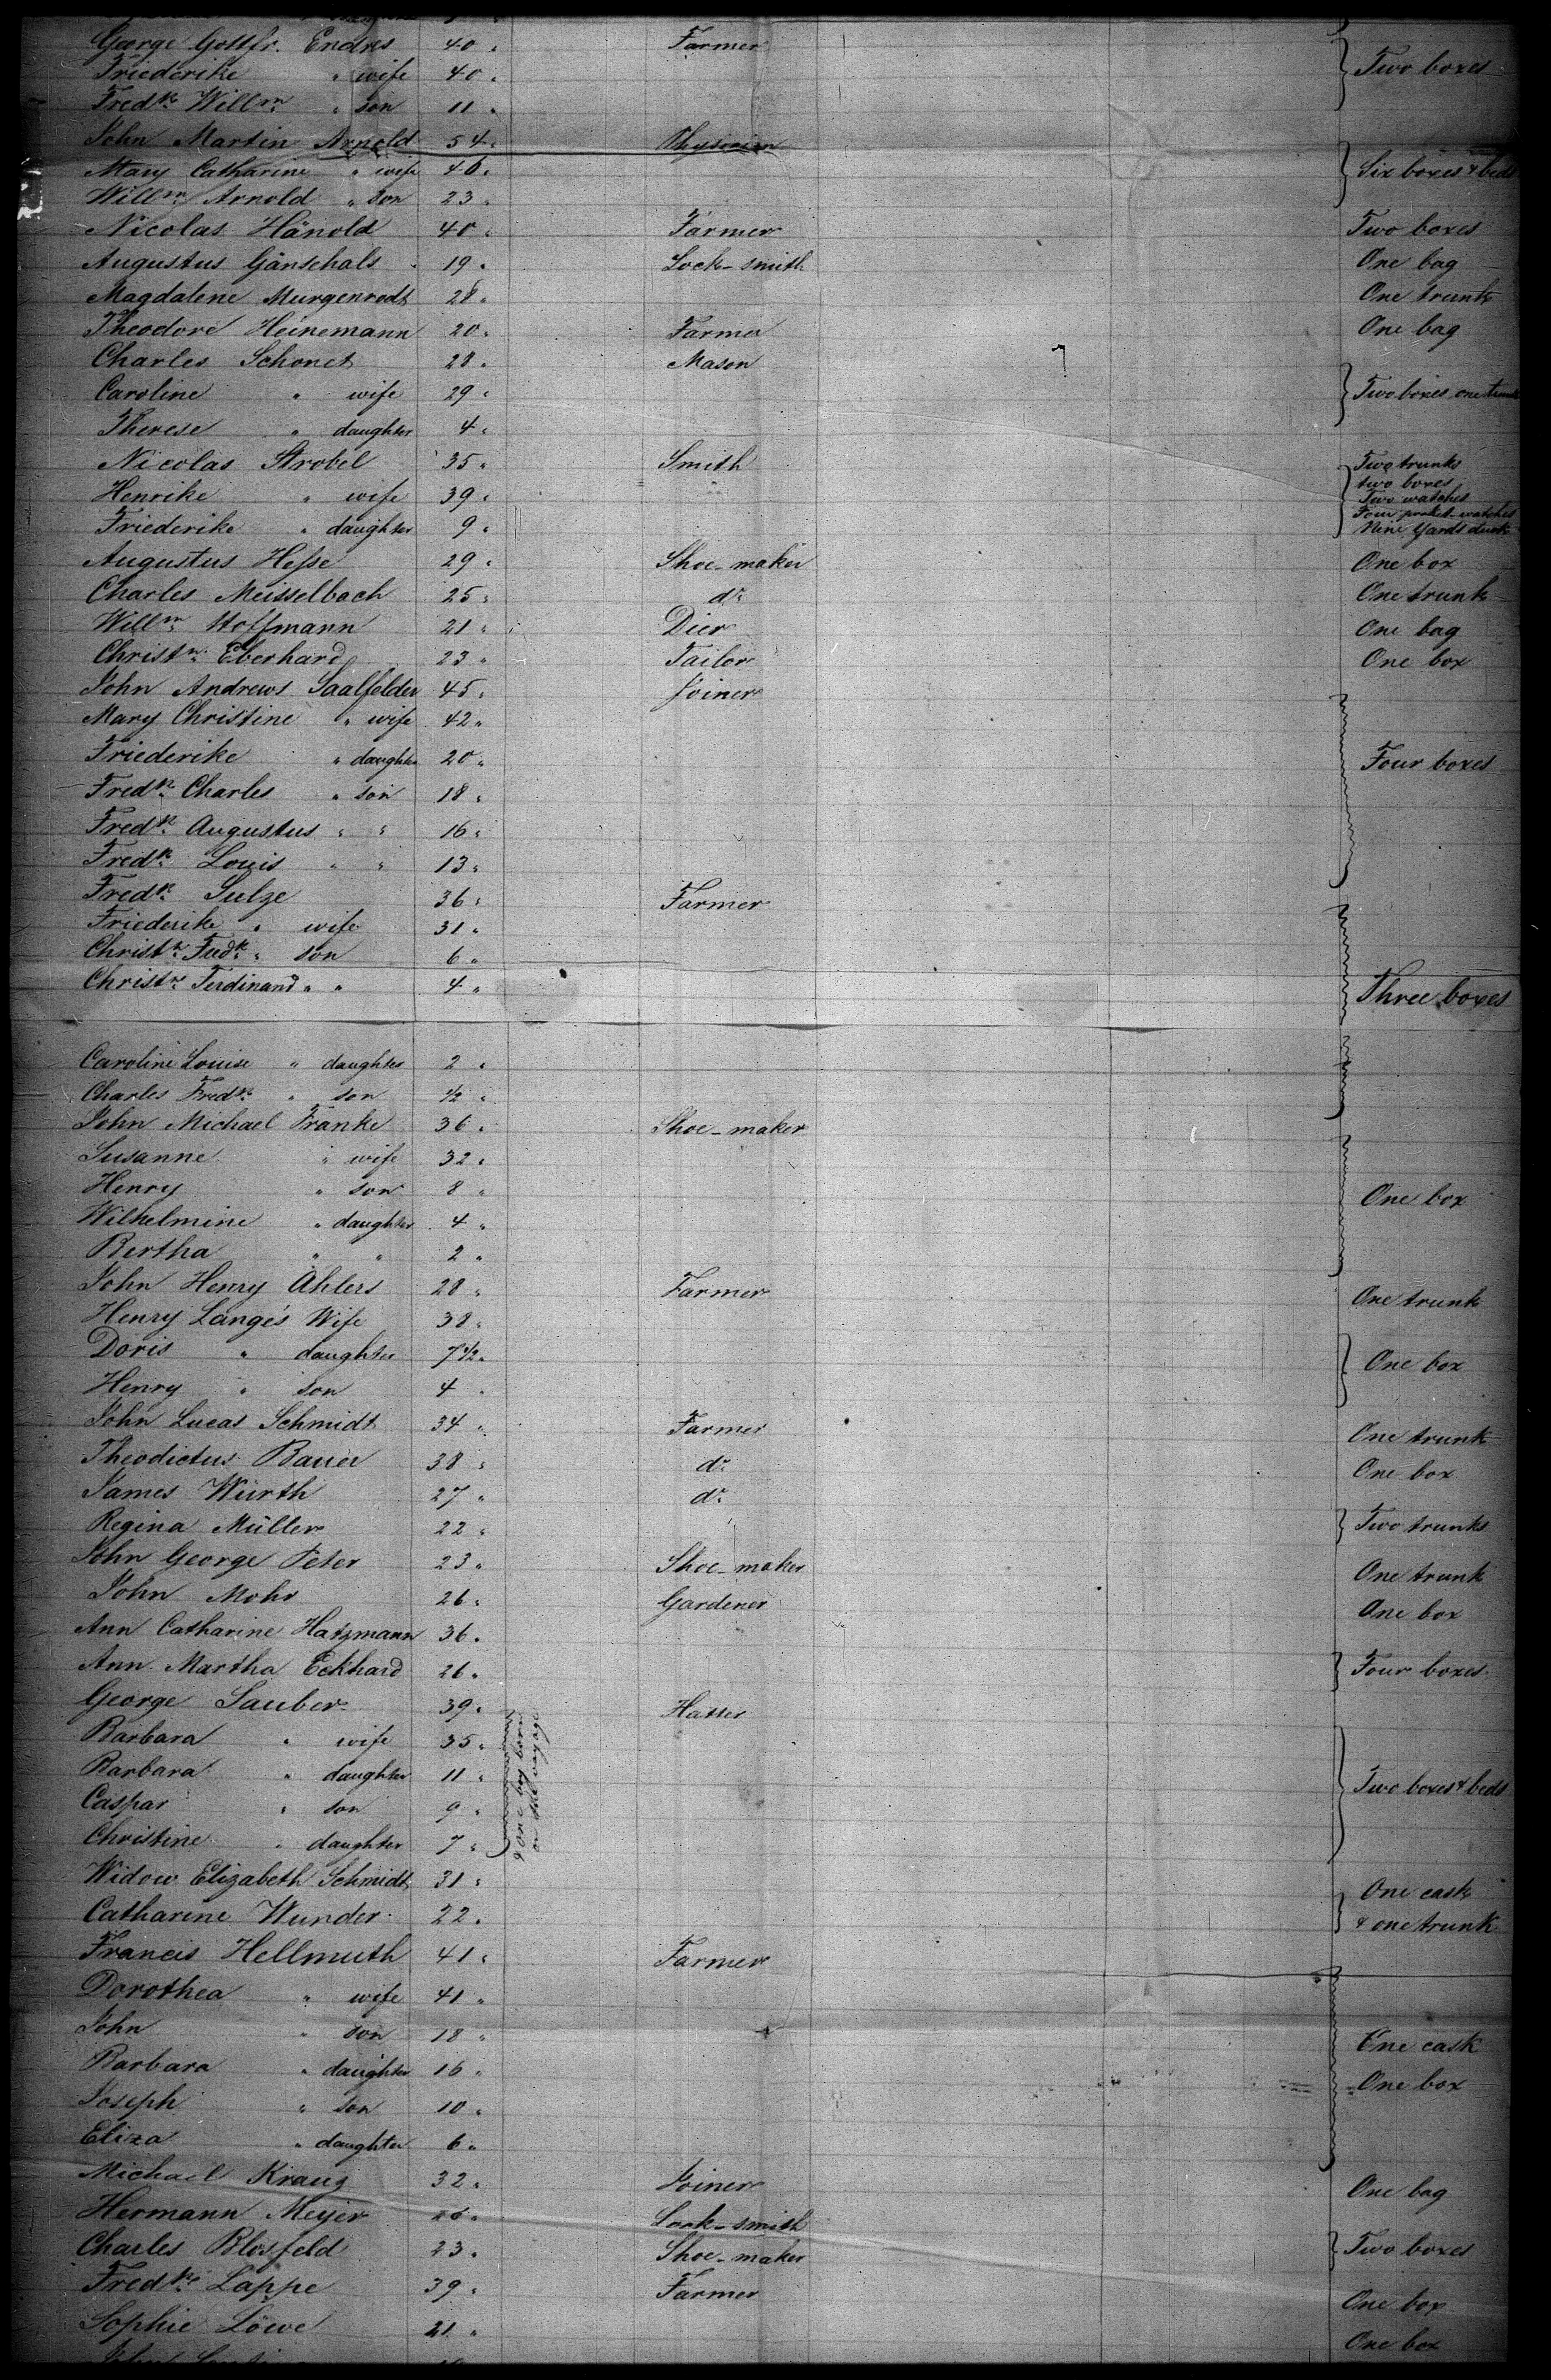 George Gottfr. Endres 40 " Farmer
Friederike " wife 40 " Two boxes
Fredk. Willm. " son 11 "
John Martin Arnold 54 " Physician
Mary Catharine " wife 46 " Six boxes & beds
Willm. Arnold " son 23 "
Nicolas Hänold 40 " Farmer Two boxes
Augustus Gänschals 19 " Lock-smith One bag
Magdalene Murgenrodt 28 " One trunk
Theodore Heinemann 20 " Farmer One bag
Charles Schonet 28 " Mason
Caroline " wife 29 " Two boxes one trunk
Therese " daughter 4 "
Nicolas Strobel 35 " Smith Two trunks
two boxes
Henrike " wife 39 " Two watches
Four pocket-watches
Friederike " daughter 9 " Nine Yards
Augustus Hesse 29 " Shoe-maker One box
Charles Meisselbach 25 " do. One trunk
Willm. Hoffmann 21 " Dier One bag
Christn. Eberhard 23 " Tailor One box
John Andrews Saalfelder 45 " Joiner
Mary Christine " wife 42 "
Friederike " daughter 20 " Four boxes
Fredk. Charles " son 18 "
Fredk. Augustus " " 16 "
Fredk. Louis " " 13 "
Fredk. Sulze 36 " Farmer
Friederike " wife 31 "
Christn. Fredk. " son 6 "
Christn. Ferdinand " " 4 " Three boxes
Caroline Louise " daughter 2 "
Charles Fredk. " son ½ "
John Michael Franke 36 " Shoe-maker
Susanne " wife 32 "
Henry " son 8 " One box
Wilhelmine " daughter 4 "
Bertha " " 2 "
John Henry Ahlers 28 " Farmer One trunk
Henry Lange's Wife 38 "
Doris " daughter 7½ " One box
Henry " son 4 "
John Lucas Schmidt 34 " Farmer One trunk
Theodictus Bauer 38 " do. One box
James Würth 27 " do.
Regina Müller 22 " Two trunks
John George Peter 23 " Shoe-maker One trunk
John Mohr 26 " Gardener One box
Ann Catharine Hatzmann 36 "
Ann Martha Eckhard 26 " Four boxes
George Sauber 39 " Hatter
Barbara " wife 35 "
Barbara " daughter 11 " Two boxes & beds
Caspar " son 9 "
Christine " daughter 7 "
& one boy born
on the voyage
Widow Elizabeth Schmidt 31 " One cask
Catharine Wunder 22 " & one trunk
Francis Hellmuth 41 " Farmer
Dorothea " wife 41 "
John " son 18 " One cask
Barbara " daughter 16 " One box
Joseph " son 10 "
Eliza " daughter 6 "
Michael Kraug 32 " Joiner One bag
Hermann Meyer 26 " Lock-smith
Charles Blosfeld 23 " Shoe-maker Two boxes
Fredk. Lappe 39 " Farmer One box
Sophie Löwe 21 " One box